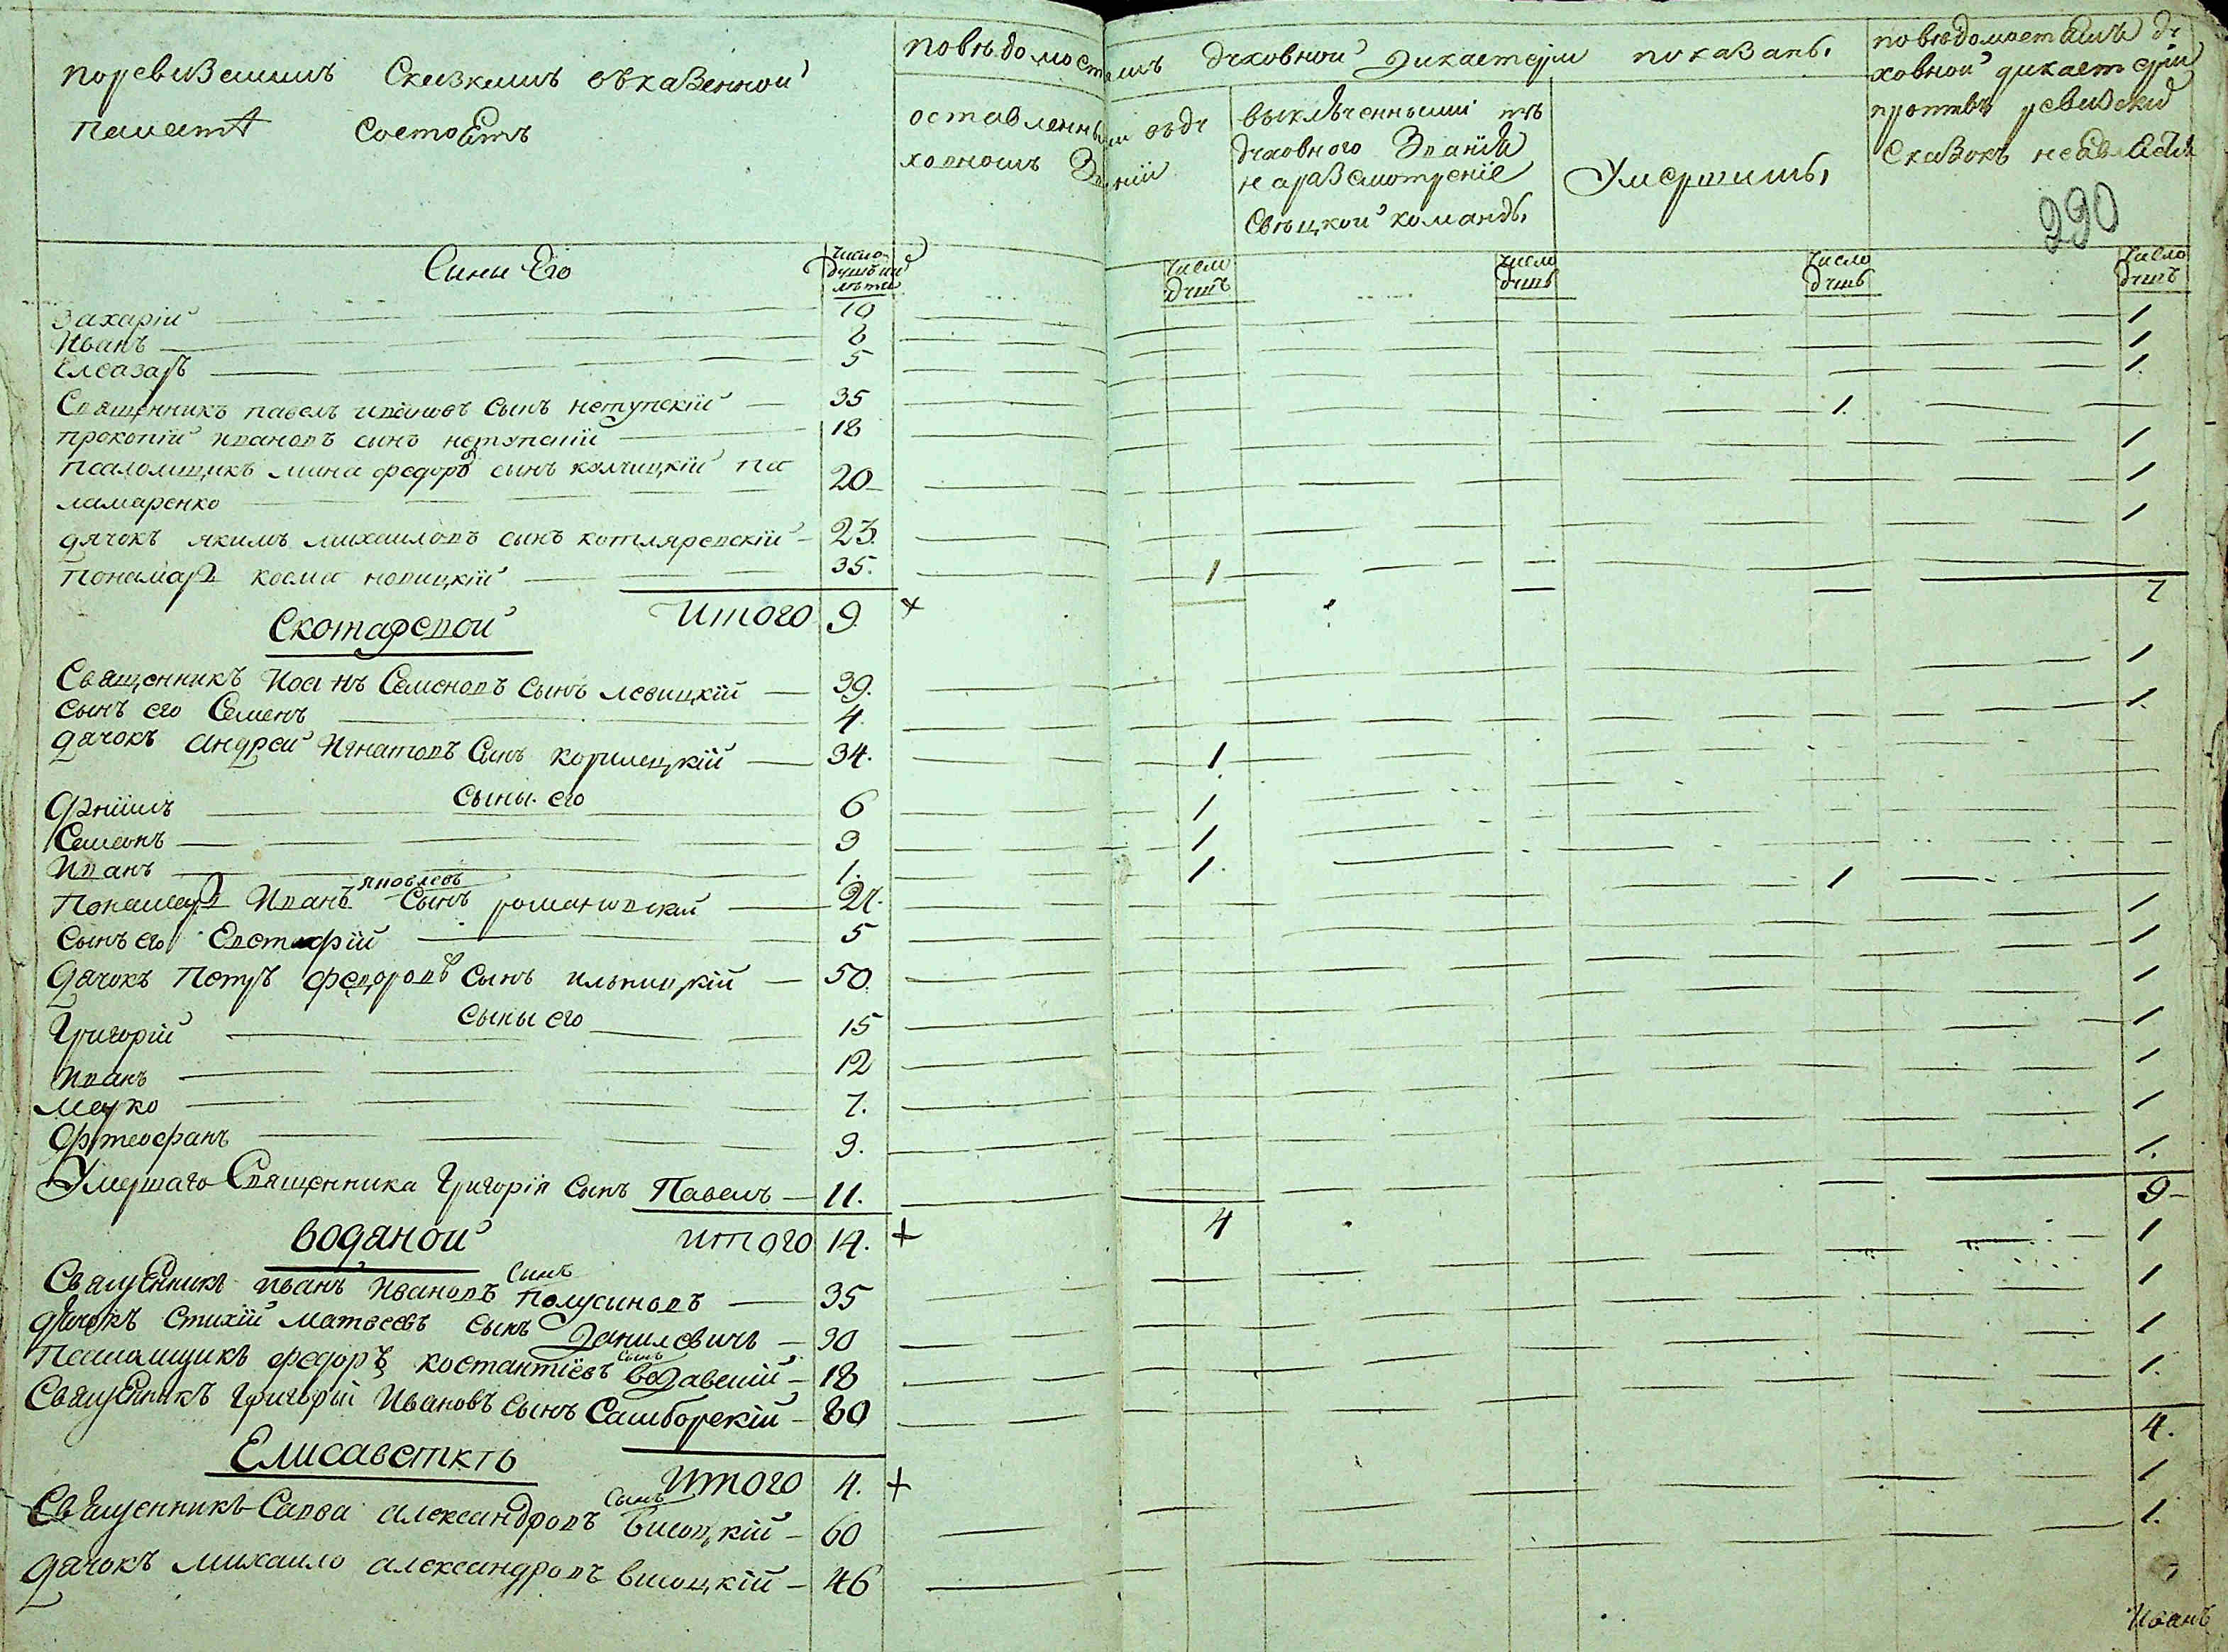 поревизскимъ Сказкамъ вказенной
палатѣ состоитъ
поведомостямъ духовной дикастеріи показаны
оставленными вду
ховномъ Званіи
выключенными изъ
духовного Званія
наразсмотреніе
Свецкой команды
Умершимы
поведомостямъ ду
ховной дикастеріи
противъ ревизскихъ
Сказокъ неявились
290
Сини Его
число душъ и лѣта
число душъ
число душъ
число душъ
число душъ
Захарій 10 1
Иванъ 8 1
Елеазаръ 5 1
Священникъ павелъ ивановъ сынъ нетупскій 35 1
прокопій ивановъ синъ нетупскій 18 1
псаломщикъ мина федоровъ синъ кулчицкій па 20 1
ламаренко
дячокъ якимъ михаиловъ сынъ котляревскій 23 1
Понамарь косма новицкій 35 1
Итого 9 + 7
Скотаревой
Священникъ Иоанъ Семеновъ сынъ левицкій 39 1
сынъ его Семенъ 4 1
дячокъ андрей Игнатовъ Сынъ корилецкій 34 1
сыны его
Ефимъ 6 1
Семенъ 3 1
Иванъ 1 1
Понамарь Иванъ яковлевъ Сынъ романовскій 27 1
Сынъ его Евстафій 5 1
Дячокъ Петръ федоровъ сынъ ильницкій 50 1
сыны его
Григорій 15 1
Иванъ 12 1
марко 7 1
9 1
Умершаго Священника Григорія сынъ Павелъ 11 1
итого 14 + 4 9
Водяной
Священникъ иванъ Ивановъ Синъ полусиновъ 35 1
дячокъ матвеевъ сынъ Данилевичъ 30 1
псаломщикъ федоръ костантіевъ сынъ 18 1
Священникъ Григорій Ивановъ сынъ Самборскій 80 1
Итого 4 + 4
Елисаветкть
Священникъ Савва александровъ Сынъ висоцкій 60 1
дячокъ михаило александровъ висоцкій 46 1
Иванъ